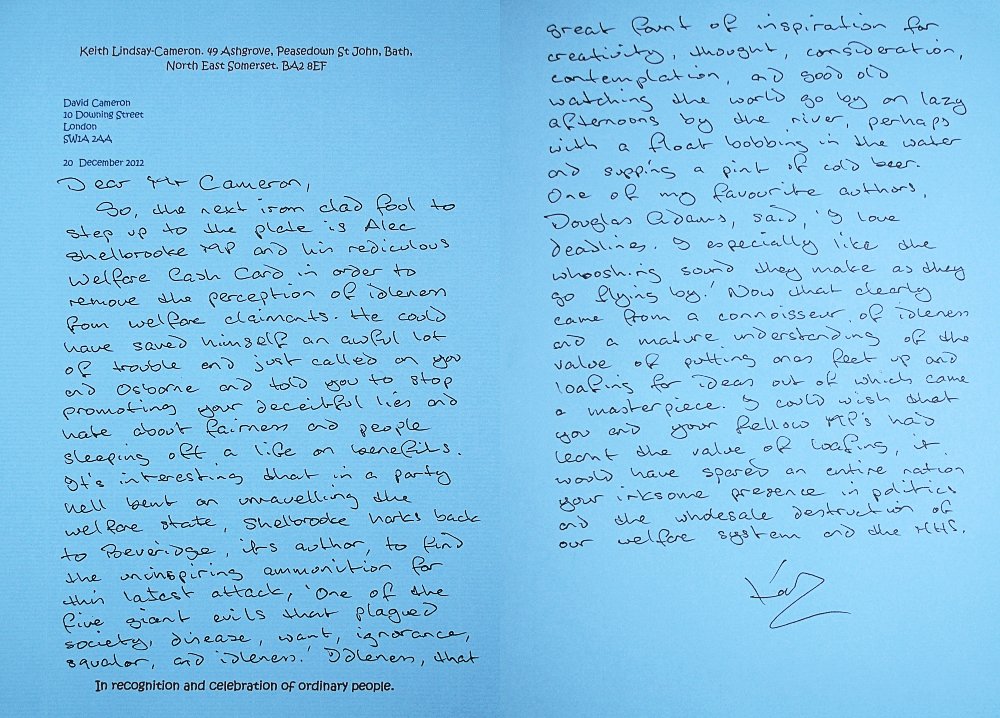 Keith Lindsay-Cameron. 49 Ashgrove, Peasedown St John, Bath,
North East Somerset. BA2 8EF
David Cameron
10 Downing Street
London
SW1A 2AA
20 December 2012
Dear Mr Cameron,
So, the next iron clad fool to
step up to the plate is Alec
Shelbrooke MP and his rediculous
Welfare Cash Card in order to
remove the perception of idleness
from welfare claimants. He could
have saved himself an awful lot
of trouble and just called on you
and Osborne and told you to stop
promoting your deceitful lies and
hate about fairness and people
sleeping off a life on benefits.
It's interesting that in a party
hell bent on unravelling the
welfare state, Shelbrooke harks back
to Beveridge, it's author, to find
the uninspiring ammunition for
this latest attack, 'One of the
five giant evils that plagued
society, disease, want, ignorance,
squalor, and idleness.' Idleness, that
In recognition and celebration of ordinary people.
great fount of inspiration for
creativity, thought, consideration,
contemplation, and good old
watching the world go by on lazy
afternoons by the river, perhaps
with a float bobbing in the water
and supping a pint of cold beer.
One of my favourite authors,
Douglas Adams, said, 'I love
deadlines. I especially like the
whooshing sound they make as they
go flying by.' Now that clearly
came from a connoisseur of idleness
and a mature understanding of the
value of putting ones feet up and
loafing for ideas out of which came
a masterpiece. I could wish that
you and your fellow MP's had
learnt the value of loafing, it
would have spared an entire nation
your irksome presence in politics
and the wholesale destruction of
our welfare system and the NHS.